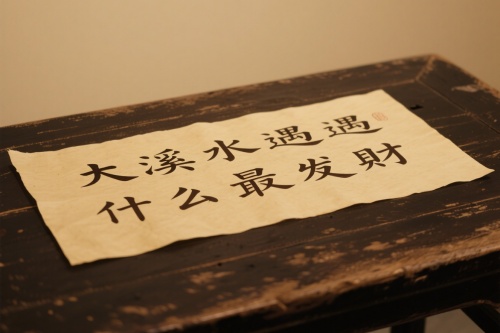 大溪水遇遇
什么最发財